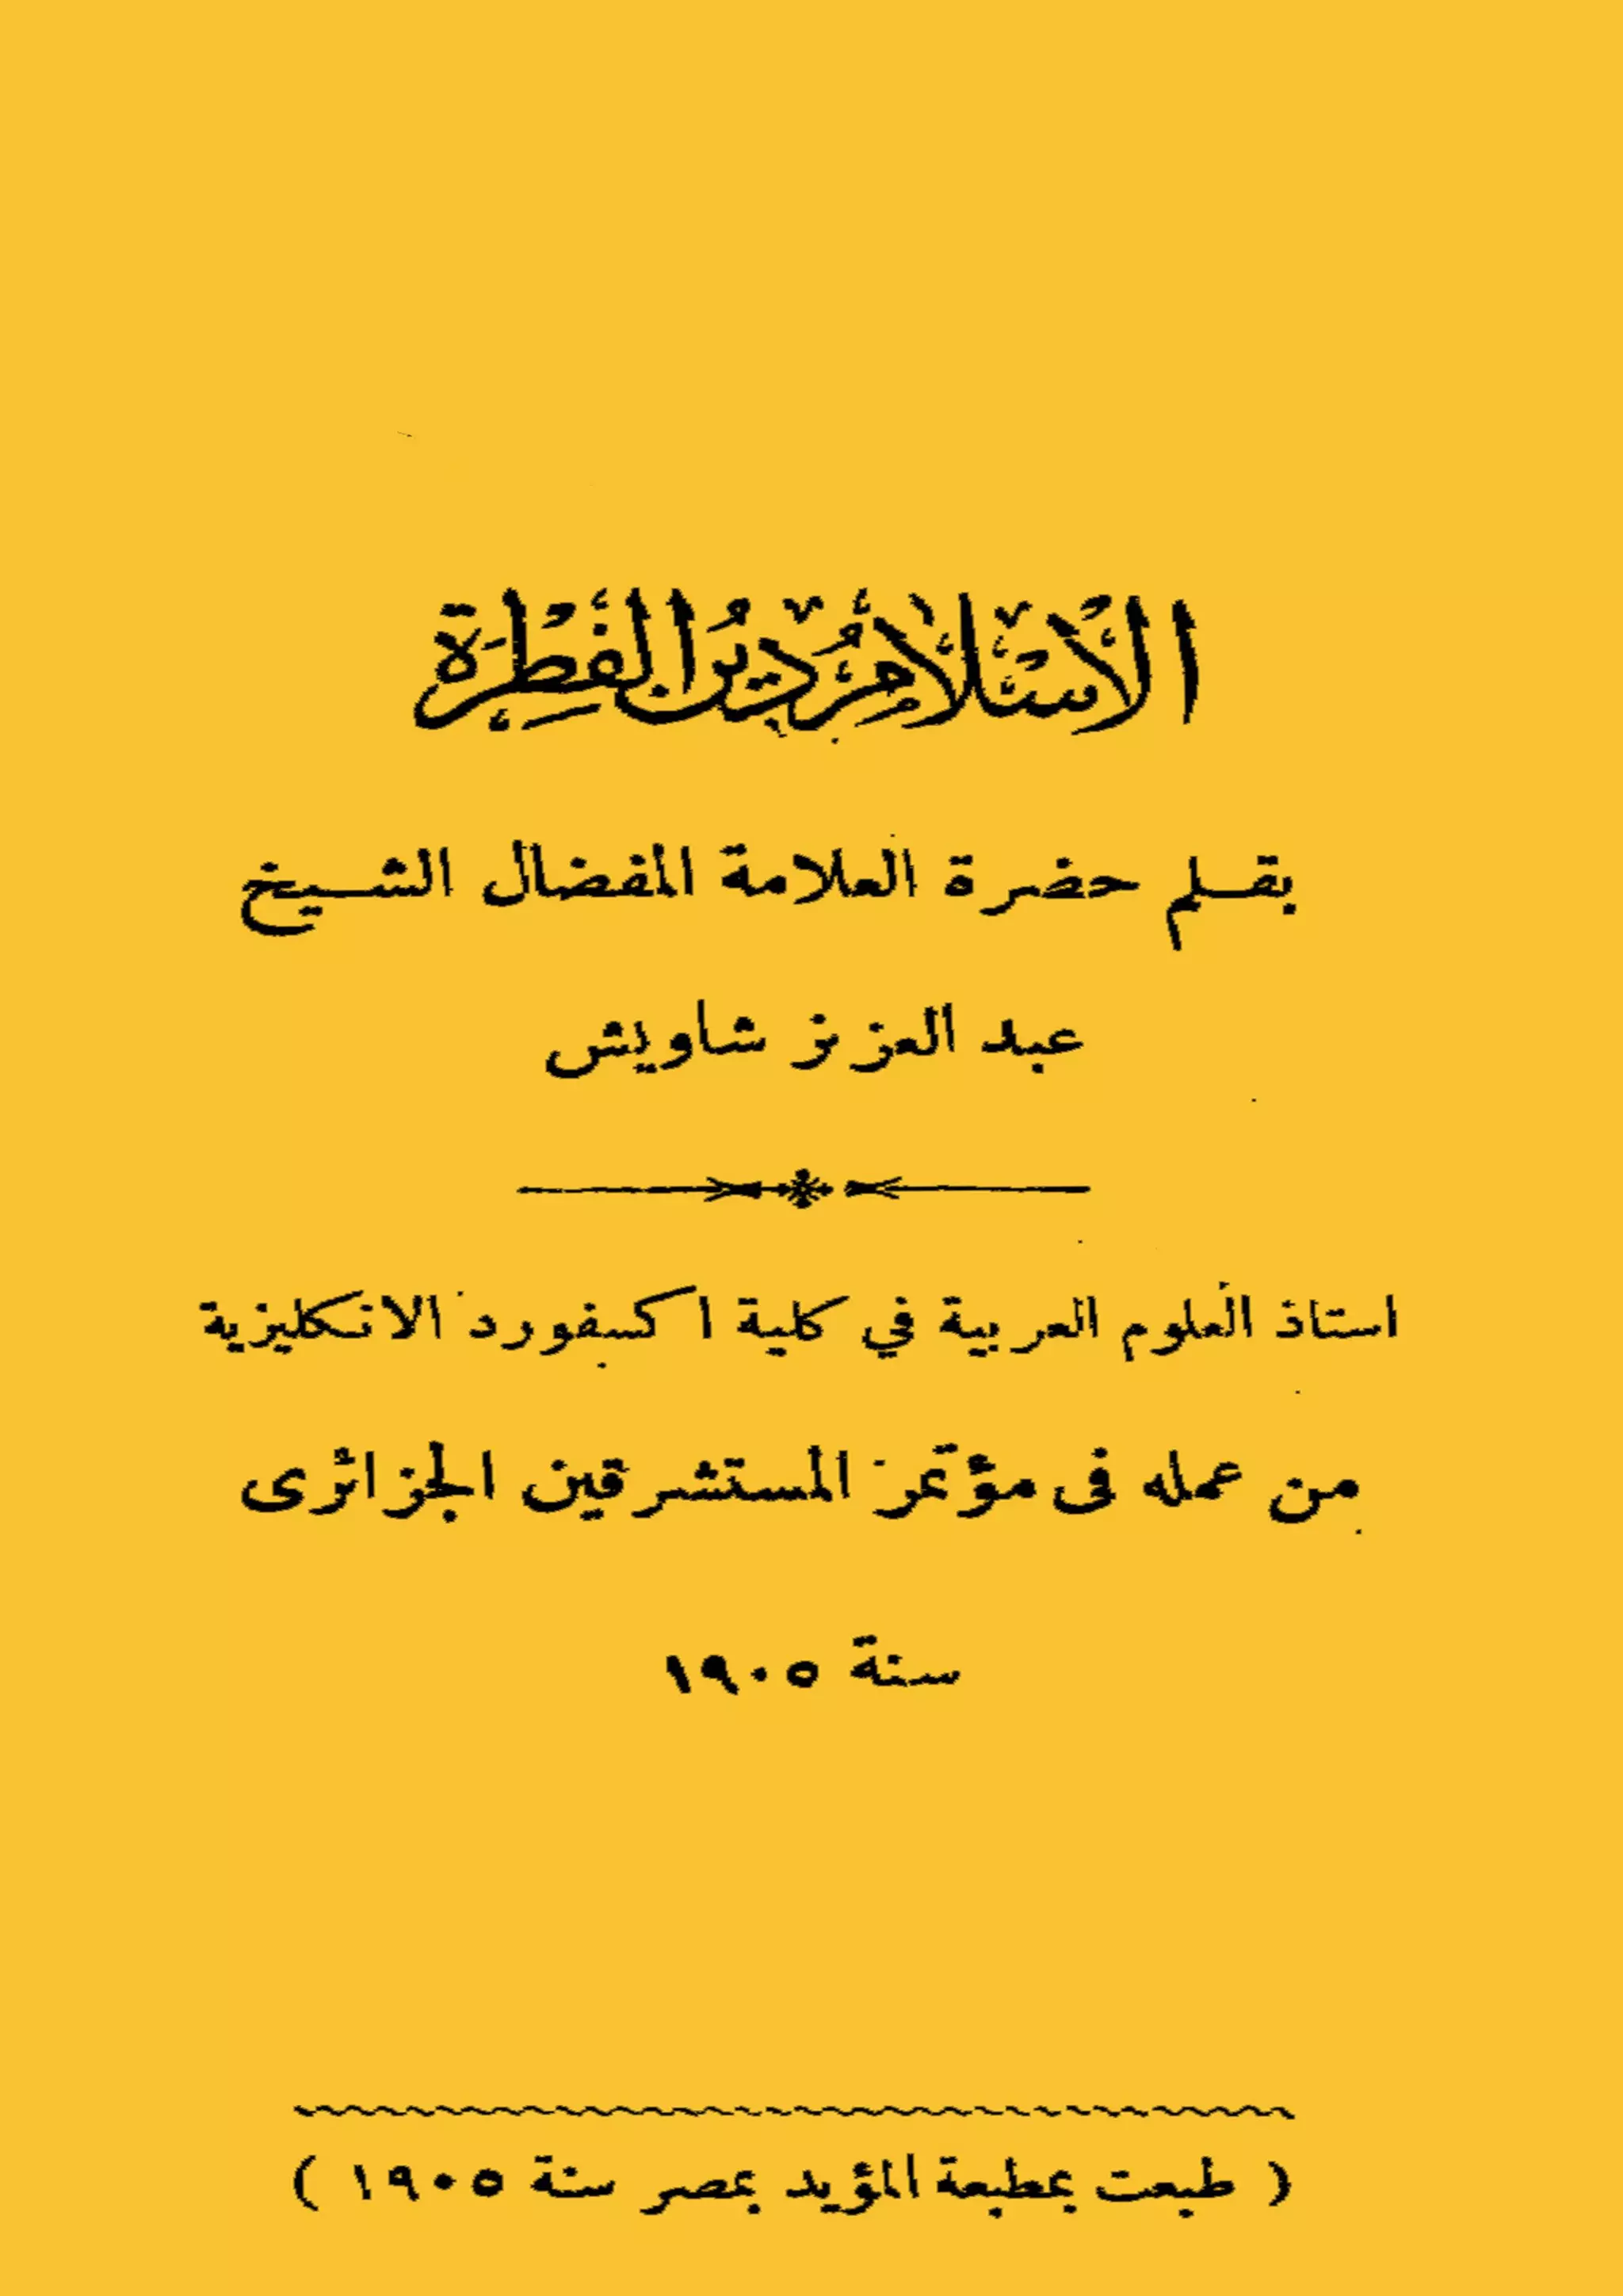 الْإِسْلَامُ دِينُ الْفِطْرَةِ
بقلم حضرة العلامة المفضال الشيخ
عبد العزيز شاويش
استاذ العلوم العربية في كلية اكسفورد الانكليزية
من عمله فى مؤتمر المستشرقين الجزائرى
سنة ١٩٠٥
( طبعت بمطبعة المؤيد بمصر سنة ١٩٠٥ )